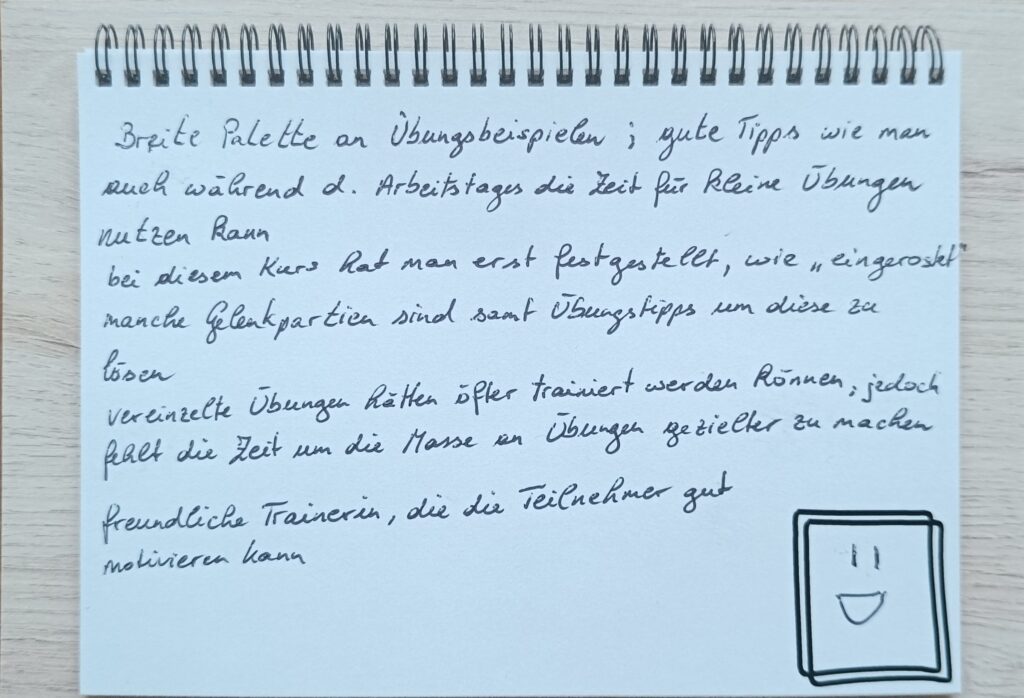 Breite Palette an Übungsbeispielen ; gute Tipps wie man
auch während d. Arbeitstages die Zeit für kleine Übungen
nutzen kann
bei diesem Kurs hat man erst festgestellt, wie „eingerostet"
manche Gelenkpartien sind samt Übungstipps um diese zu
lösen
vereinzelte Übungen hätten öfter trainiert werden können, jedoch
fehlt die Zeit um die Masse an Übungen gezielter zu machen
freundliche Trainerin, die die Teilnehmer gut
motivieren kann